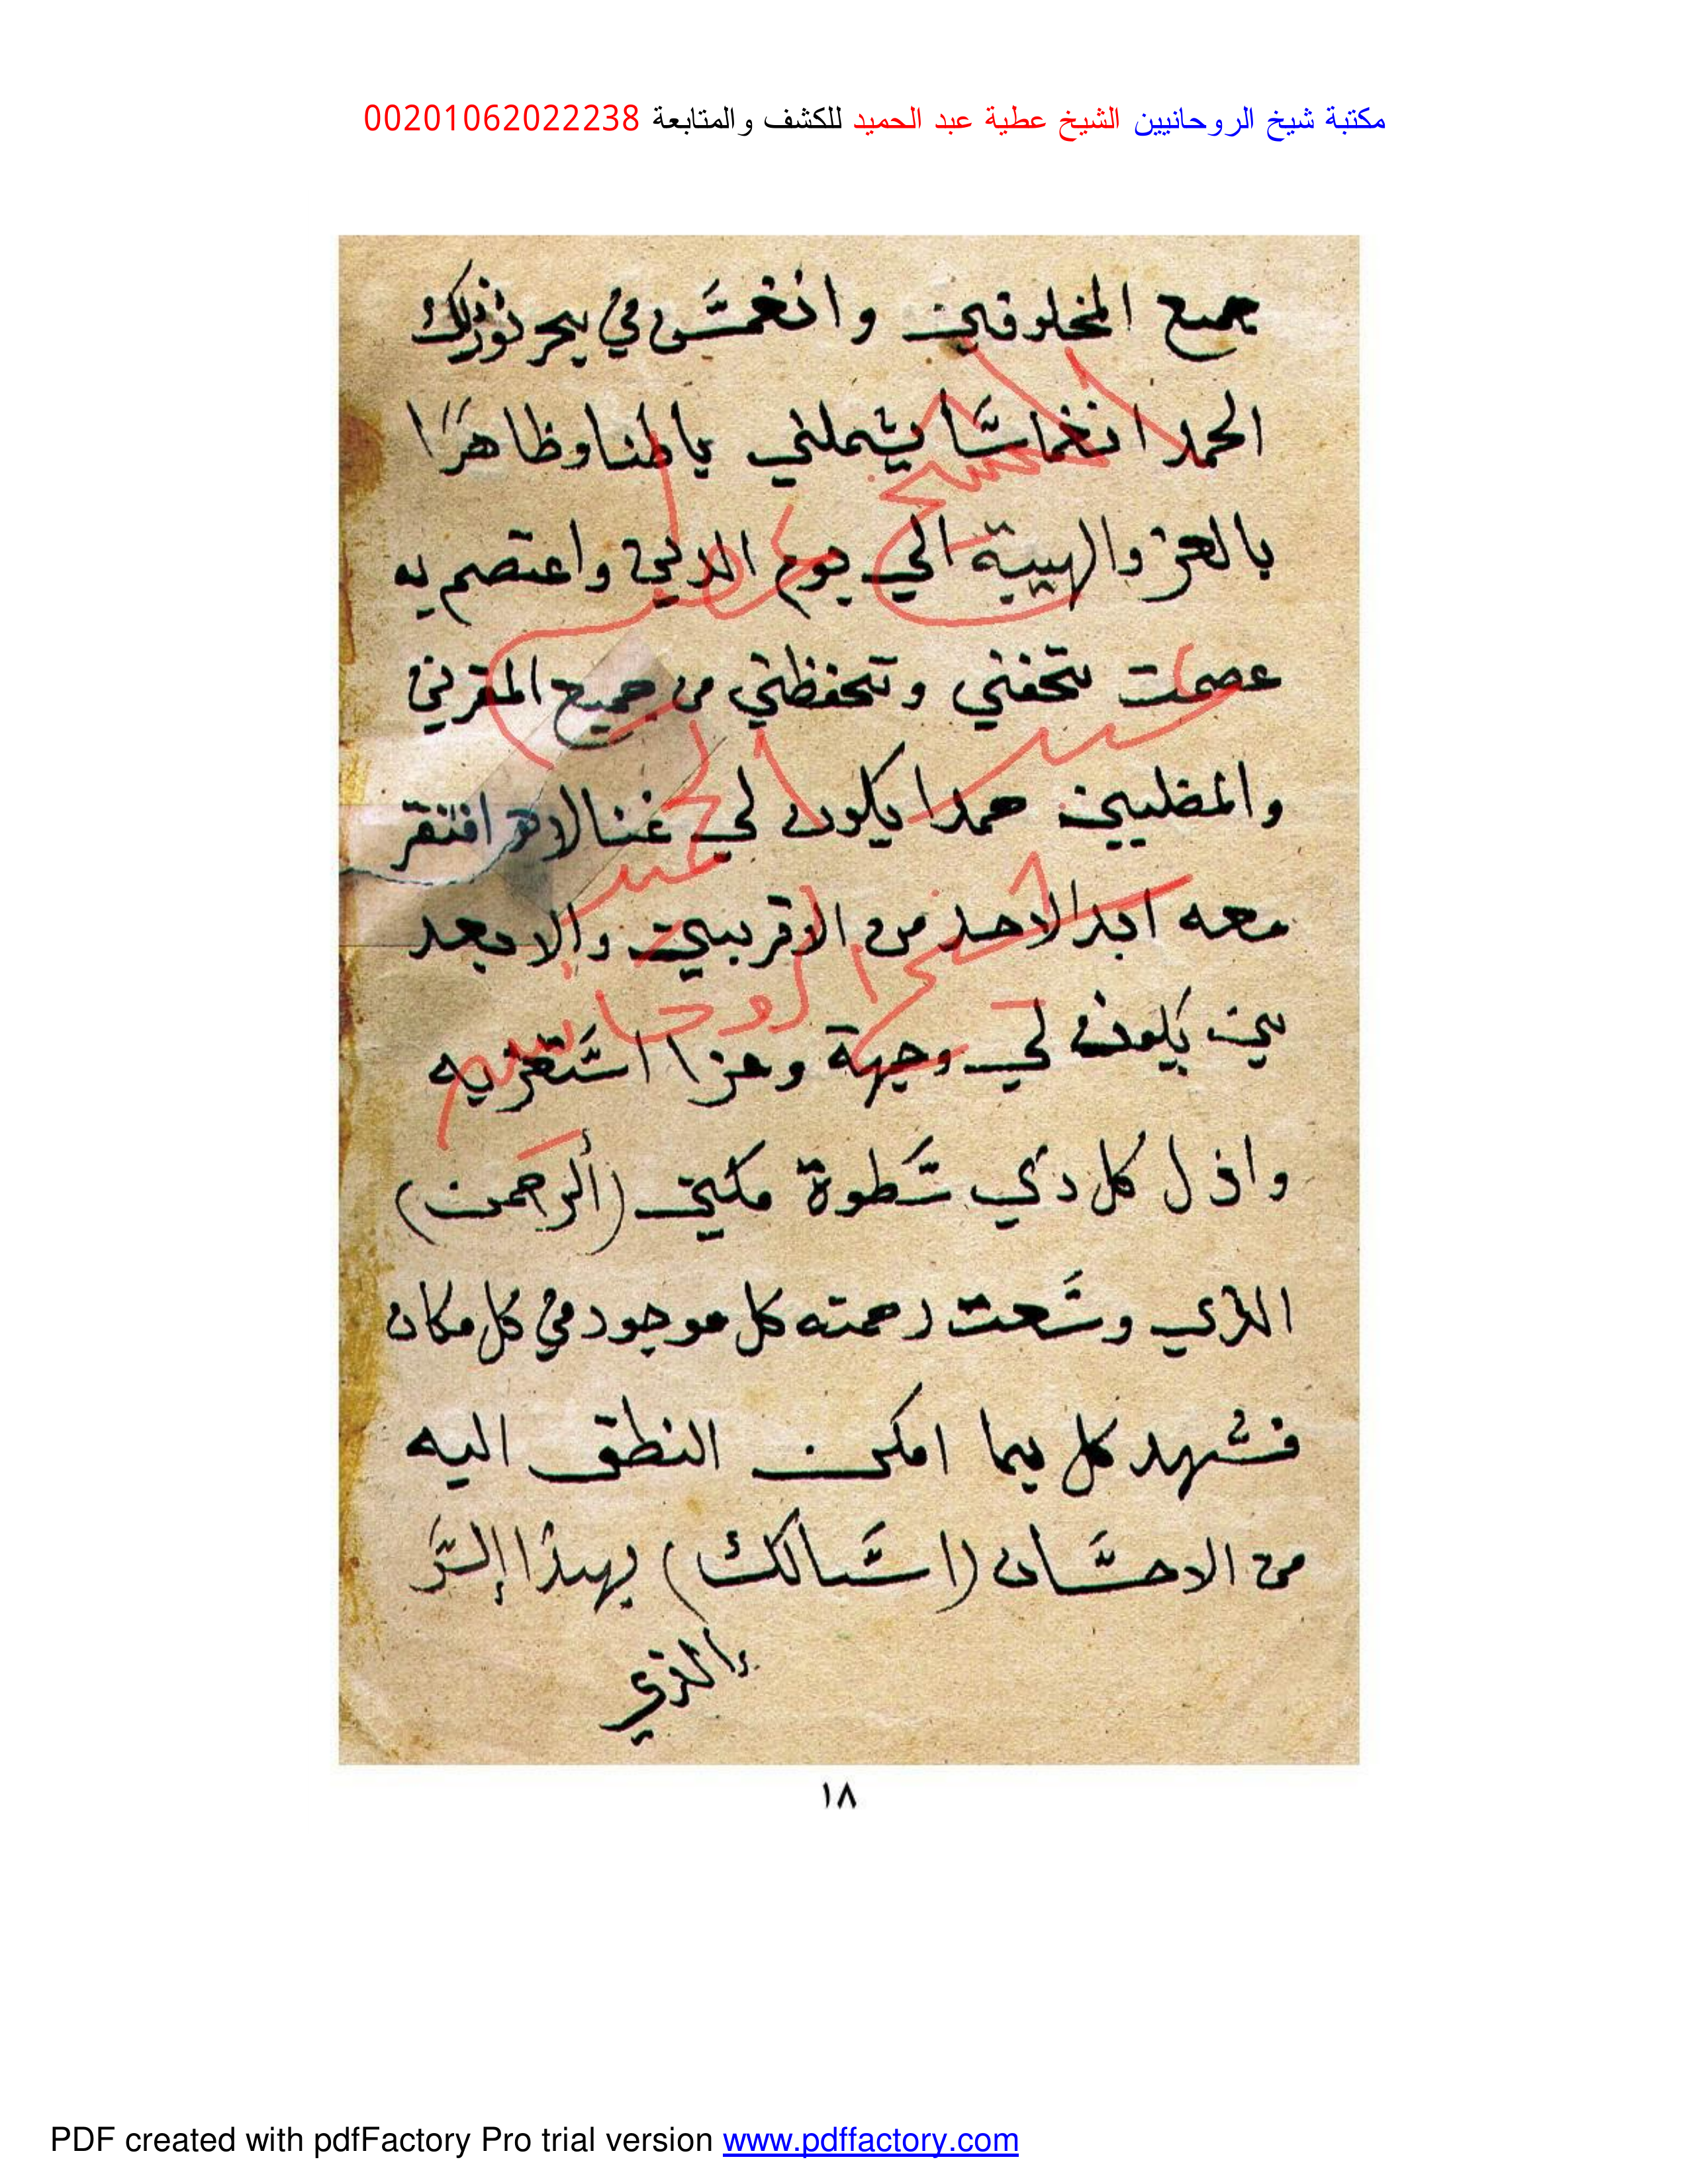 مكتبة شيخ الروحانيين الشيخ عطية عبد الحميد للكشف والمتابعة 00201062022238
جميع المخلوقين وانغمس في بحر نور
الحمد انغماسا يشملني باطنا وظاهرا
بالعز والهيبة الي يوم الدين واعتصم به
عصمت تحفني وتحفظني من جميع المقرنين
والمضلين حمدا يكون لي غنا لا افتقر
معه ابدا لاحد من الاقربين والابعد
ين يكون لي وجهة وعزا استعز به
واذل كل دي سطوة مكين (ألرحمن)
الذي وسعت رحمته كل موجود في كل مكان
فشهد كل بما امكن النطق اليه
من الاحسان (اسالك) بهذا السر
الذي
الشيخ عطية
عبد الحميد
شيخ الروحانيين
١٨
PDF created with pdfFactory Pro trial version www.pdffactory.com